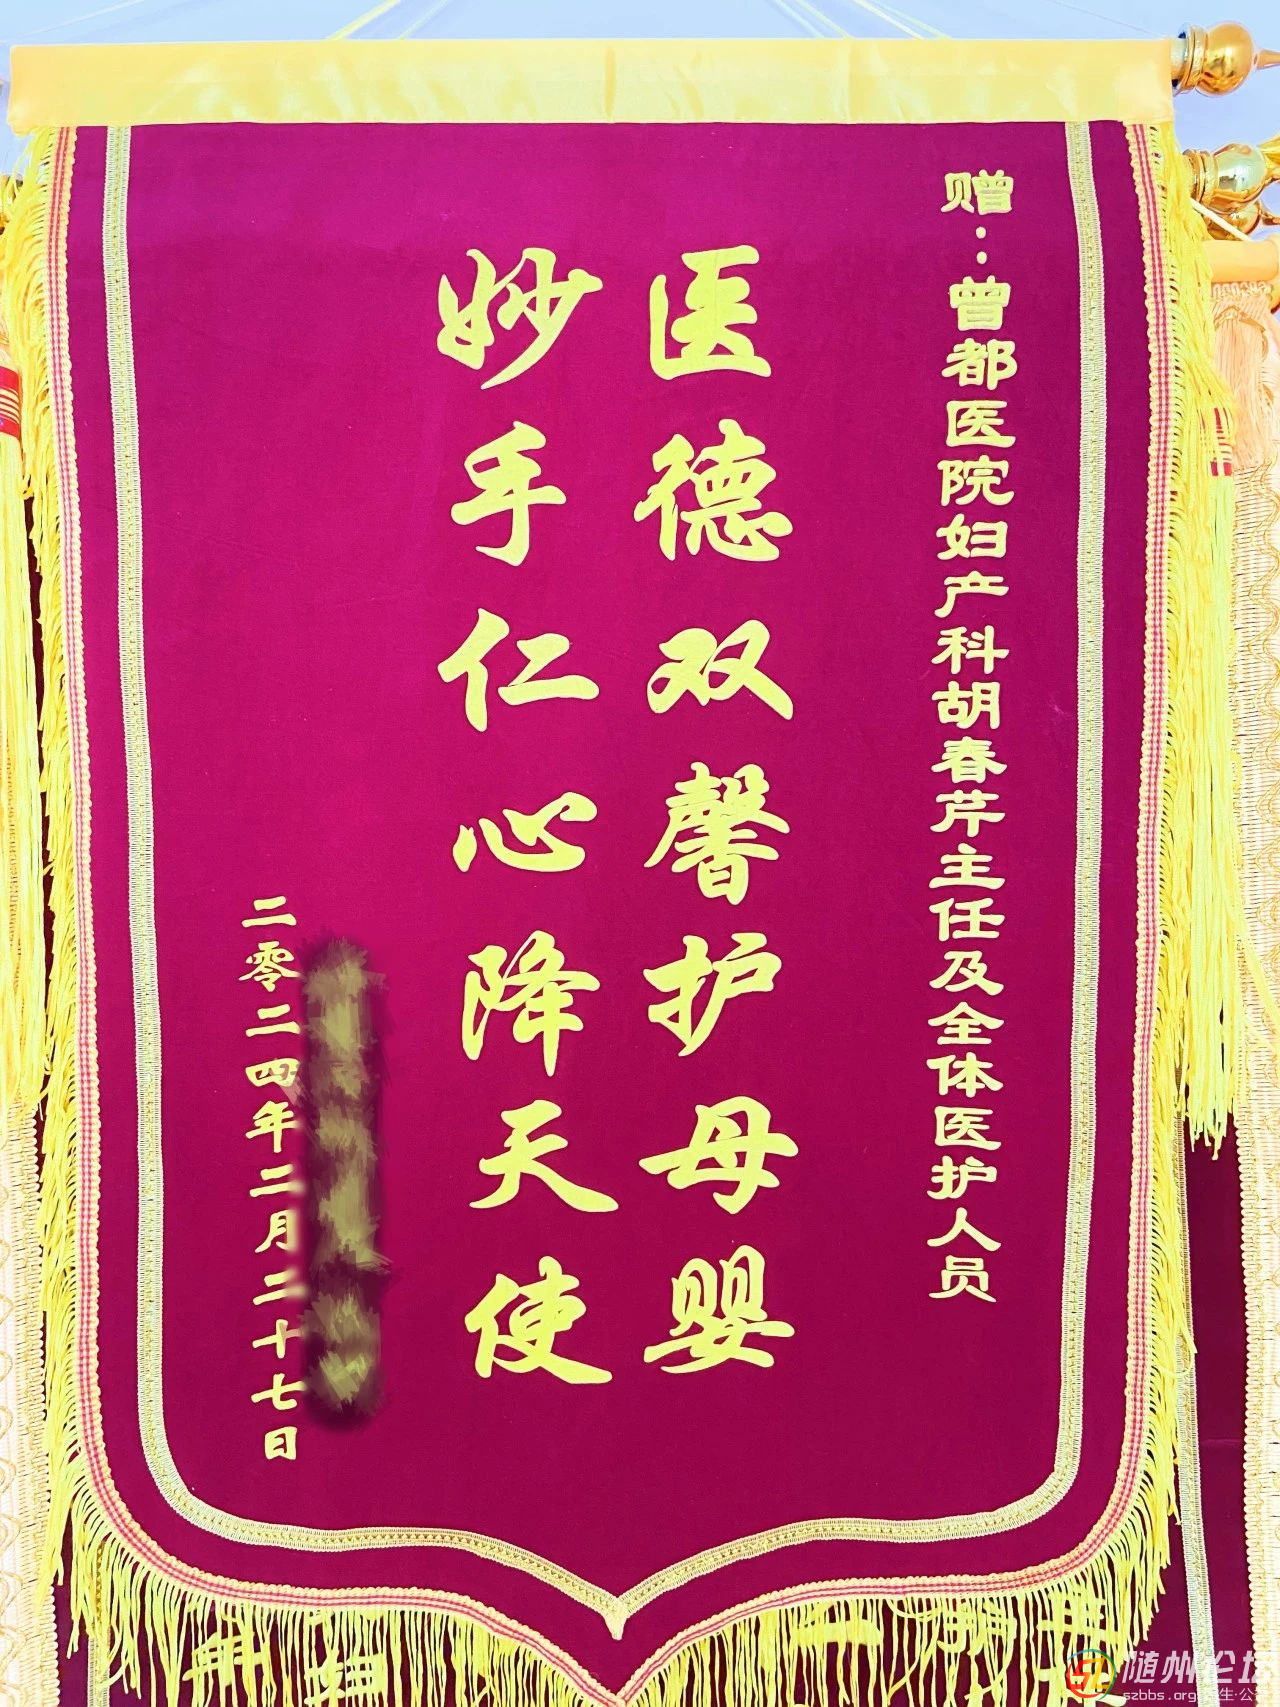 赠：曾都医院妇产科胡春芹主任及全体医护人员
医德双馨护母婴
妙手仁心降天使
二零二四年二月二十七日
随州论坛
szbbs.org